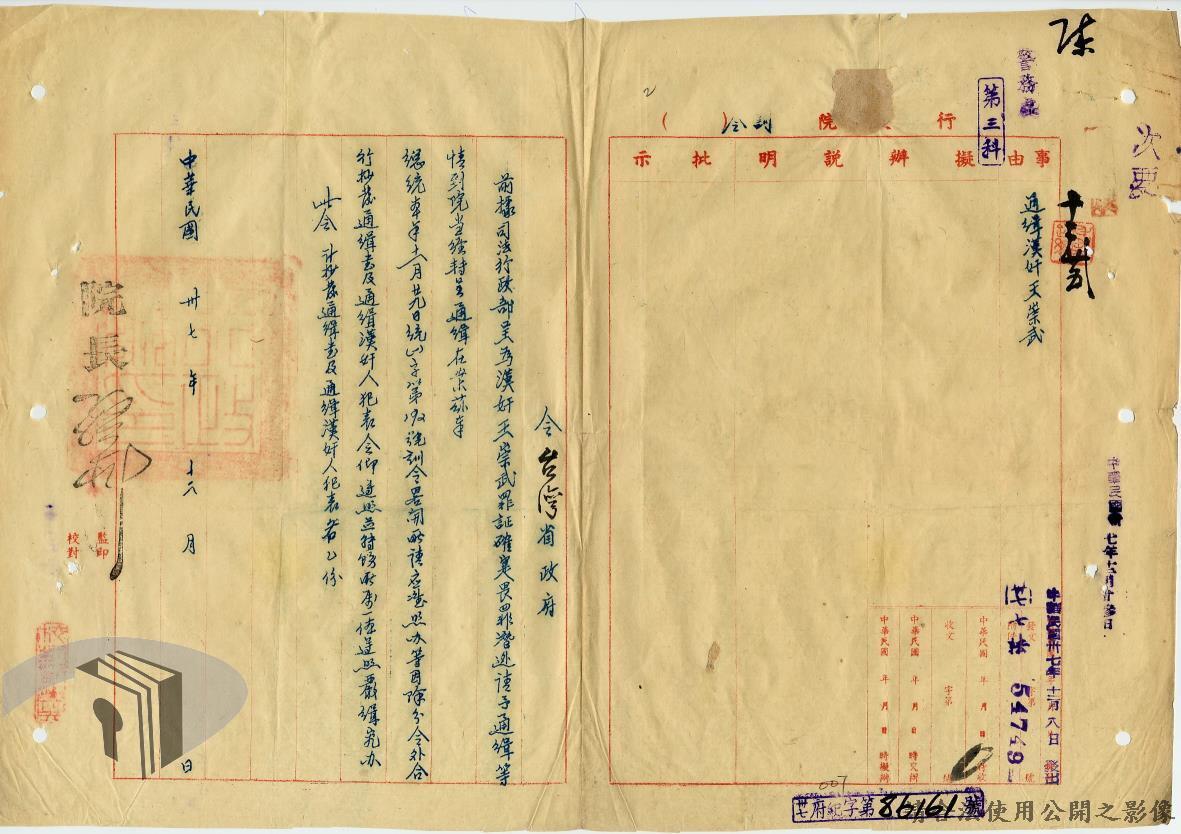 陈
警務處
第三科
次要
行 院 訓令( )
事由 擬辦 說明 批示
通緝漢奸王崇武
中華民國卅七年十二月八日 發出
卅七 54749
發文 字第 號
中華民國 年 月 日
收文 字第 號
中華民國 年 月 日 時交辦
中華民國 年 月 日 時擬辦
卅七府紀字第86161號
007
令台灣省政府
前據司法行政部呈為漢奸王崇武罪証確鑿畏罪潛逃請予通緝等
情到院当經轉呈通緝在案茲奉
總統本年十一月廿九日統(一)字第192號訓令署開所請應准照办等因除分令外合
行抄發通緝書及通緝漢奸人犯表令仰遵照並轉飭所屬一体遵照嚴緝究办
此令 計抄發通緝書及通緝漢奸人犯表各乙份
院長 孫科
中華民國卅七年十二月 日
監印
校對
請合法使用公開之影像